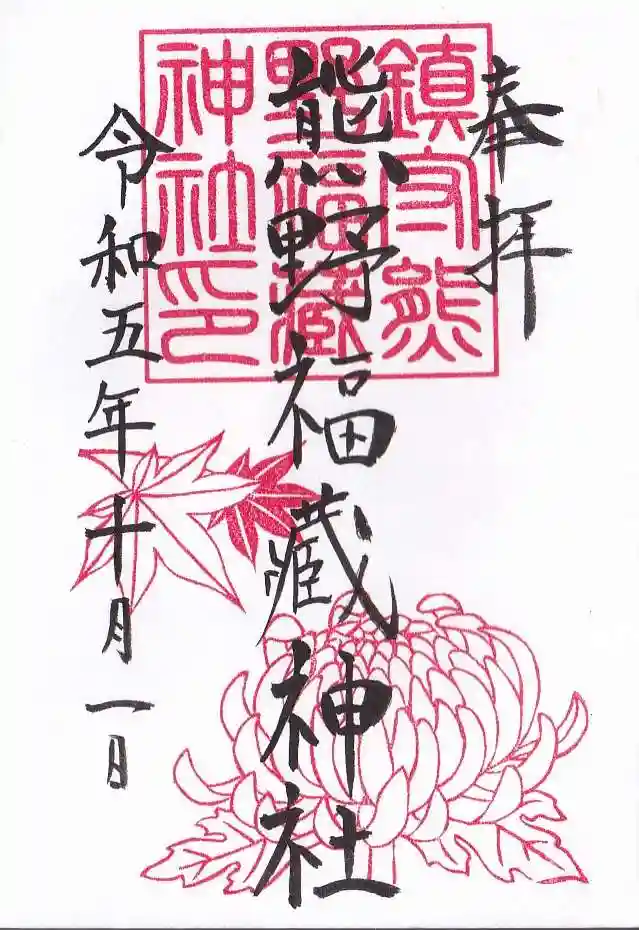 奉拝
鎮守熊
野福蔵
神社印
熊野福藏神社
令和五年十月一日